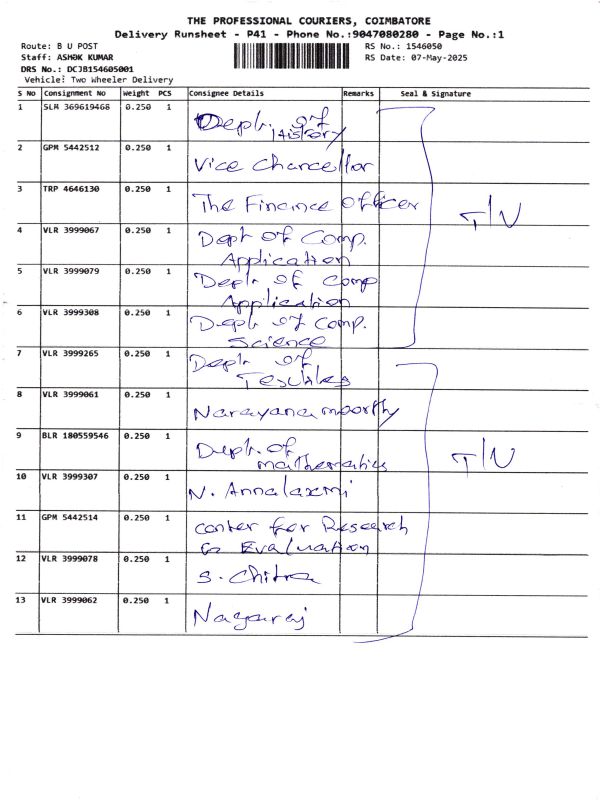 THE PROFESSIONAL COURIERS, COIMBATORE
Delivery Runsheet - P41 - Phone No.:9047080280 - Page No.:1
Route: B U POST
RS No.: 1546050
Staff: ASHOK KUMAR
RS Date: 07-May-2025
DRS No.: DCJB154605001
Vehicle: Two Wheeler Delivery
S No Consignment No Weight PCS Consignee Details Remarks Seal & Signature
1 SLM 369619468 0.250 1 Dept. of
History
2 GPM 5442512 0.250 1 Vice Chancellor
3 TRP 4646130 0.250 1 The Finance Officer
T/N
4 VLR 3999067 0.250 1 Dept of Comp.
Application
5 VLR 3999079 0.250 1 Dept. of Comp
Application
6 VLR 3999308 0.250 1 Dept. of Comp.
Science
7 VLR 3999265 0.250 1 Dept. of
Textiles
8 VLR 3999061 0.250 1 Narayanamoorthy
9 BLR 180559546 0.250 1 Dept. of
mathematics
T/N
10 VLR 3999307 0.250 1 N. Annalaxmi
11 GPM 5442514 0.250 1 Center for Research
& Evaluation
12 VLR 3999078 0.250 1 S. Chitra
13 VLR 3999062 0.250 1 Nagaraj